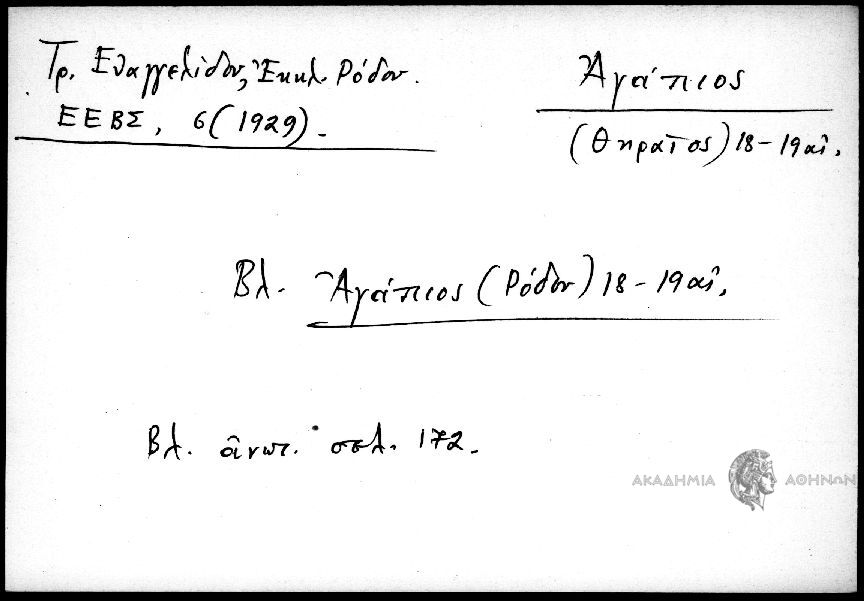 Τρ. Εὐαγγελίδου, Ἐκκλ. Ρόδου.
ΕΕΒΣ, 6(1929).
Ἀγάπιος
(Θηραῖος) 18-19 αἰ.
Βλ. Ἀγάπιος (Ρόδου) 18-19 αἰ.
Βλ. ἀνωτ. σελ. 172.
ΑΚΑΔΗΜΙΑ ΑΘΗΝΩΝ